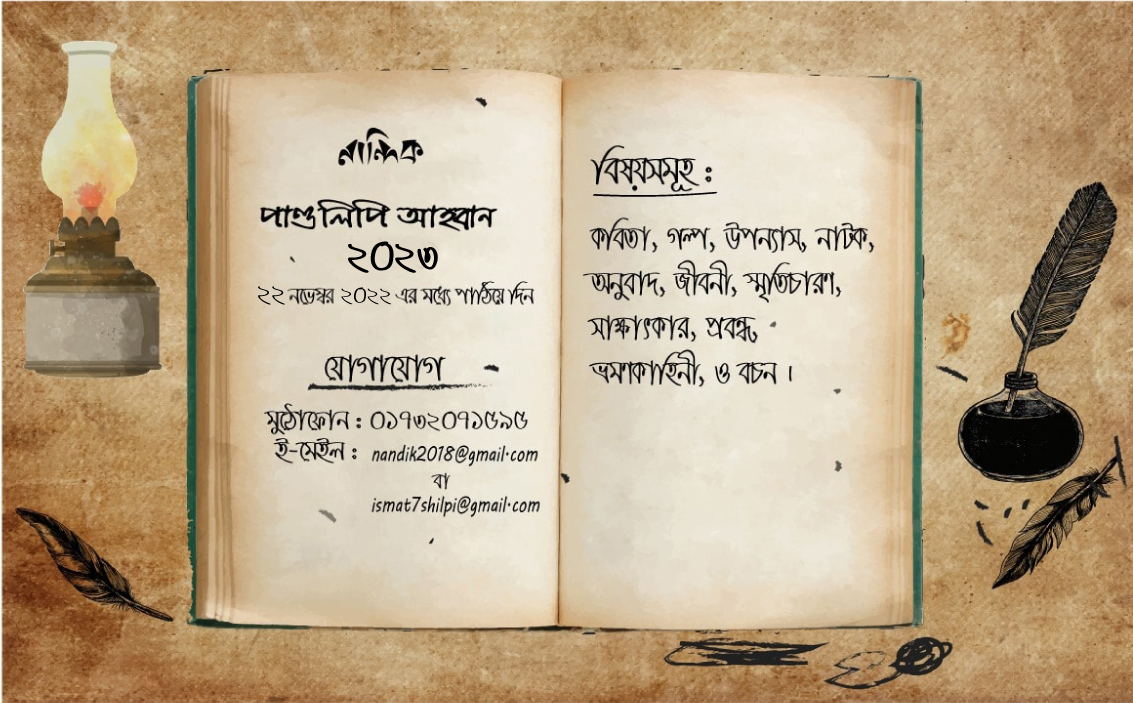 নান্দিক
পাণ্ডুলিপি আহ্বান
২০২৩
২২ নভেম্বর ২০২২ এর মধ্যে পাঠিয়ে দিন
যোগাযোগ
মুঠোফোন : ০১৭৩২০৭১৫৯৫
ই-মেইল : nandik2018@gmail.com
বা
ismat7shilpi@gmail.com
বিষয়সমূহ :
কবিতা, গল্প, উপন্যাস, নাটক,
অনুবাদ, জীবনী, স্মৃতিচারণ,
সাক্ষাৎকার, প্রবন্ধ,
ভ্রমণকাহিনী, ও বচন ।